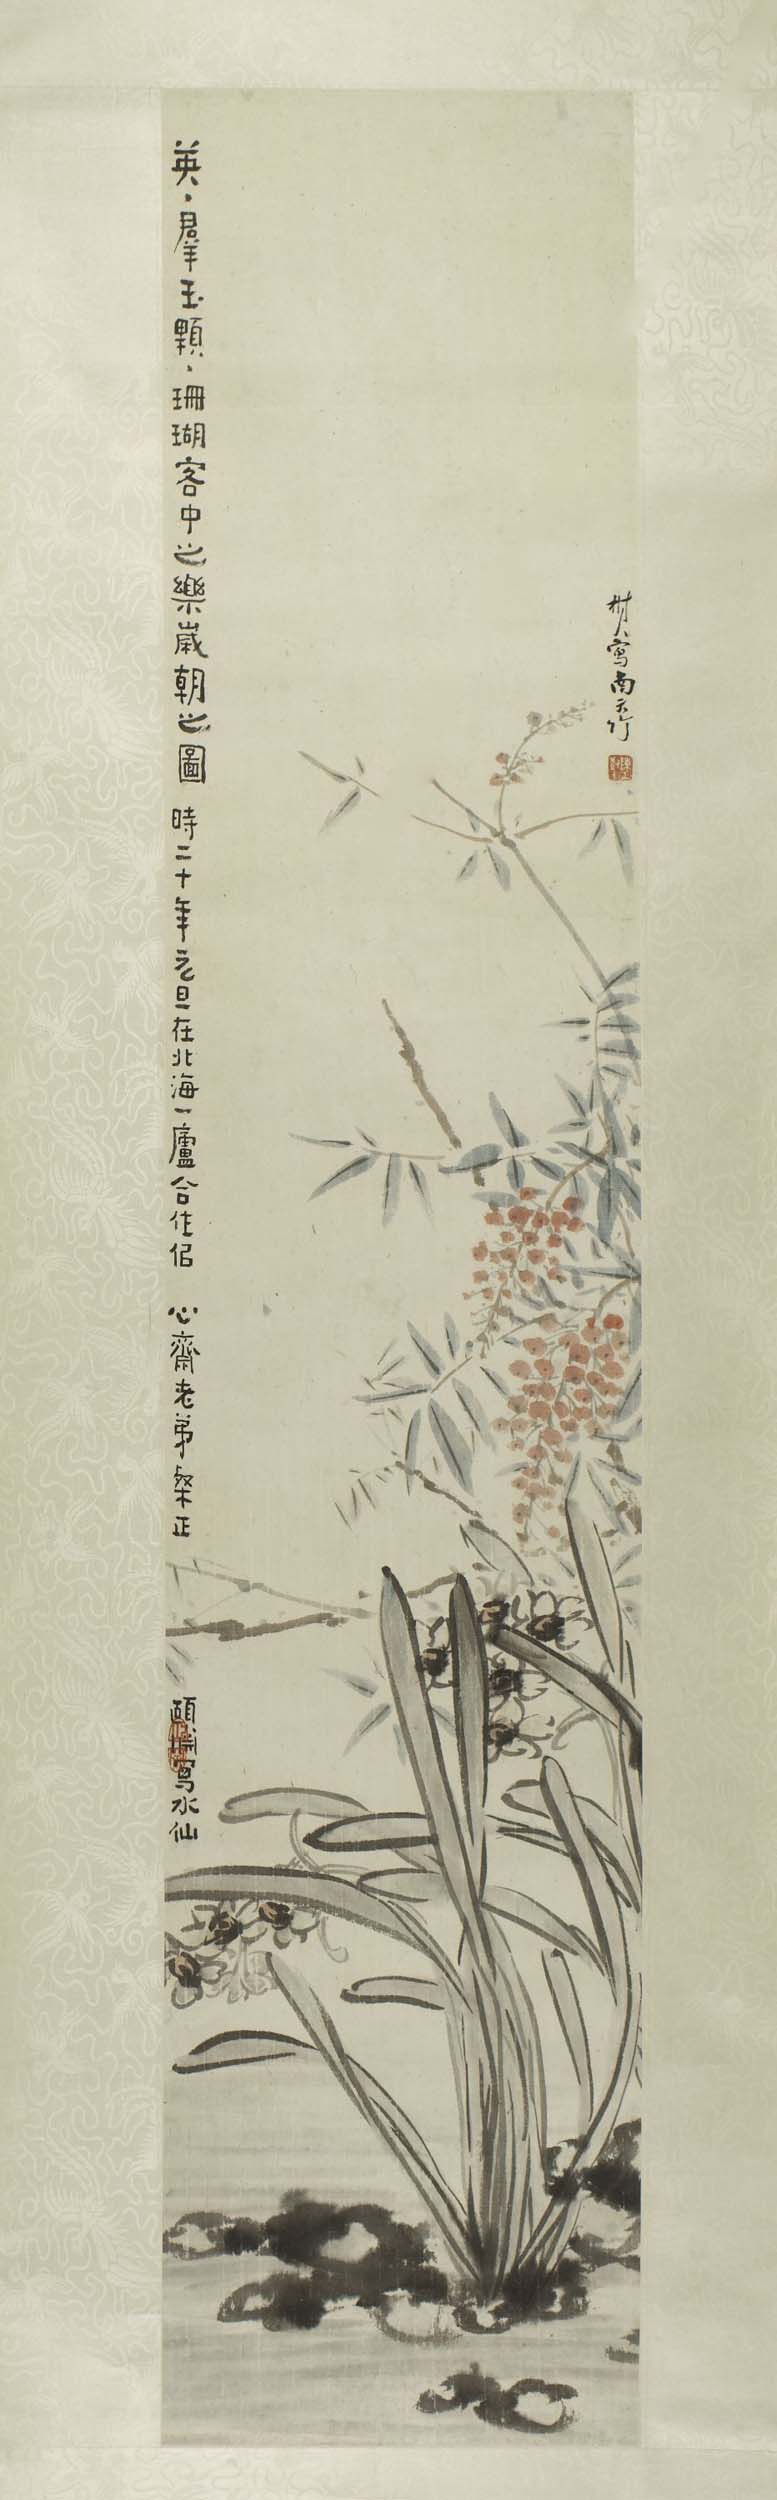 樹人寫南天竹
英、羣玉顆、珊瑚客中之樂歲朝之圖 時二十年元旦在北海一廬合作似 心齋老弟粲正
頤 寫水仙